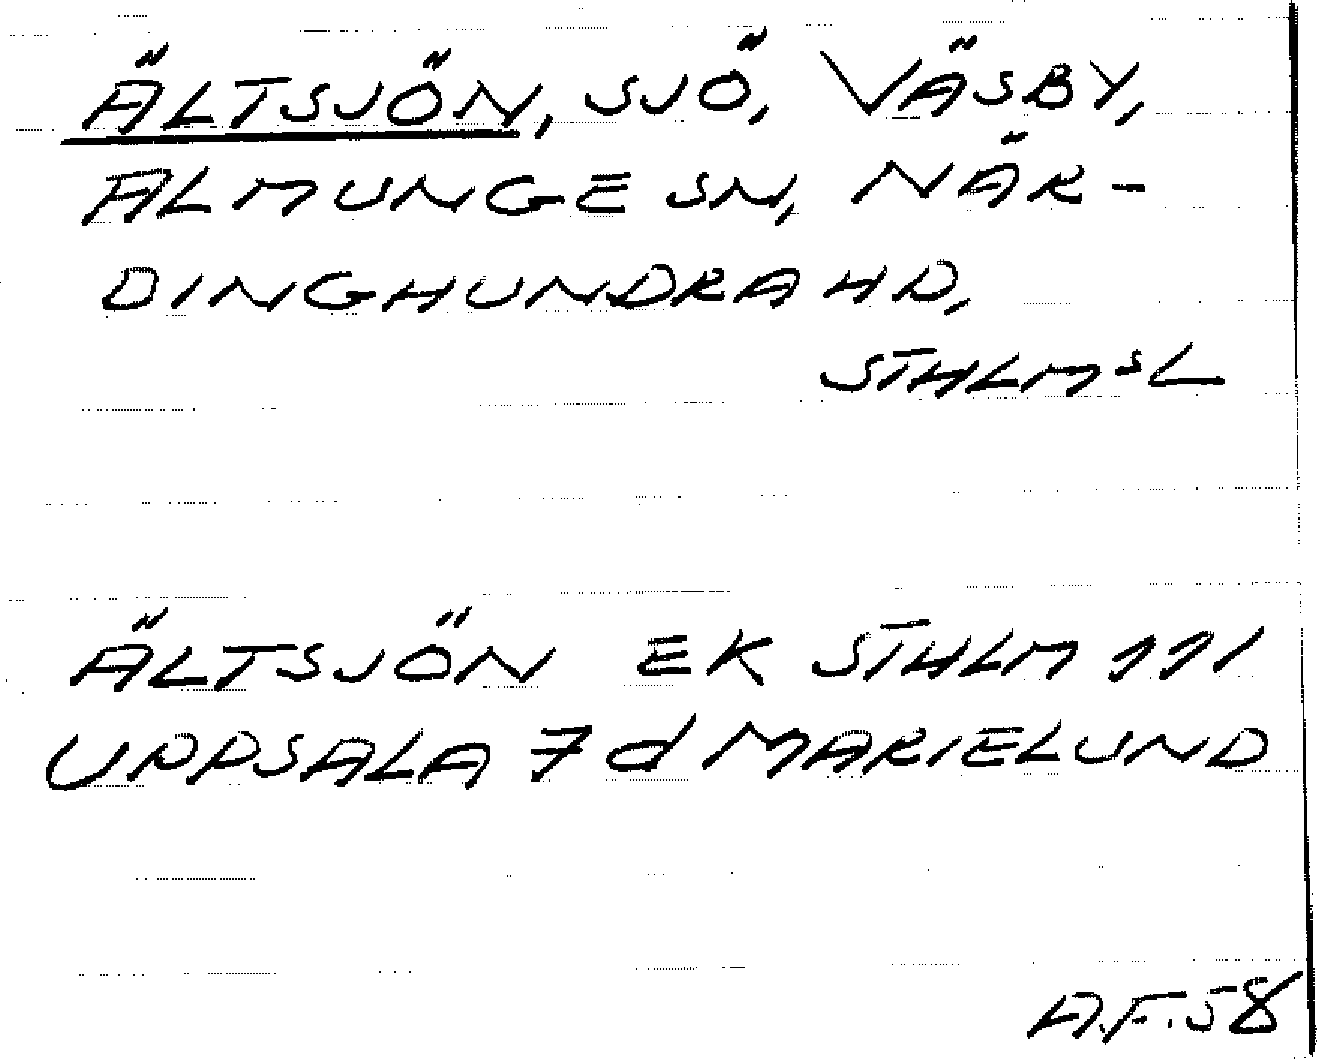 ÄLTSJÖN, SJÖ, VÄSBY,
ALMUNGE SN, NÄR-
DINGHUNDRA HD,
STHLMSL
ÄLTSJÖN EK STHLM 111
UPPSALA 7 d MARIELUND
A.F. 58